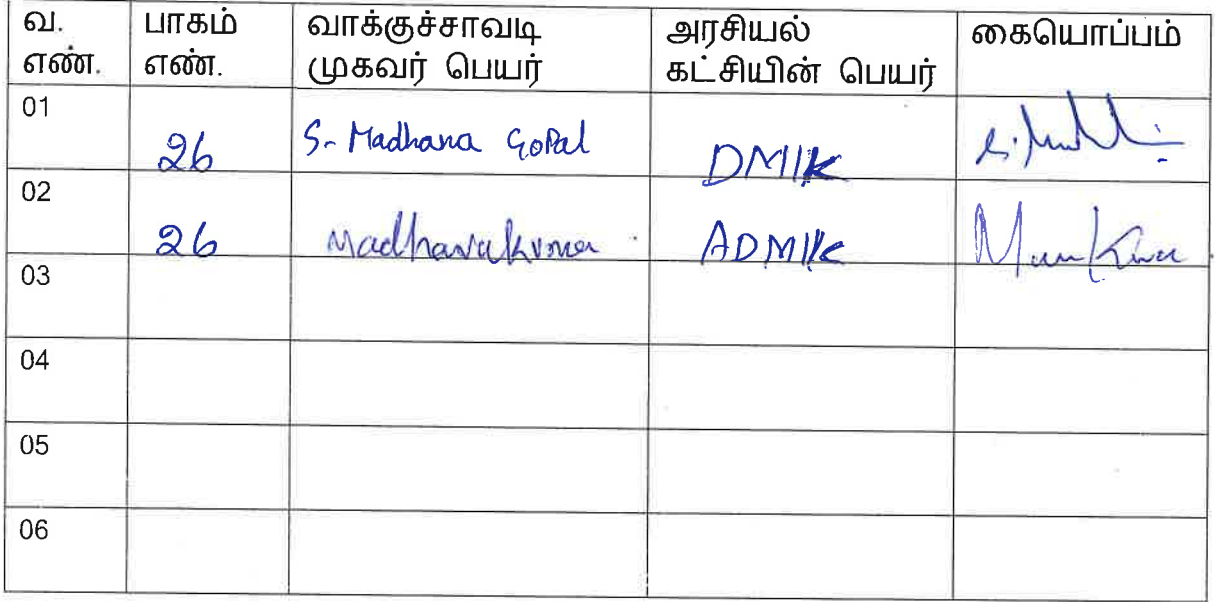 வ. எண். பாகம் எண். வாக்குச்சாவடி முகவர் பெயர் அரசியல் கட்சியின் பெயர் கையொப்பம்
01 26 S. Madhana Gopal DMK
02 26 Madhanakumar ADMK
03
04
05
06